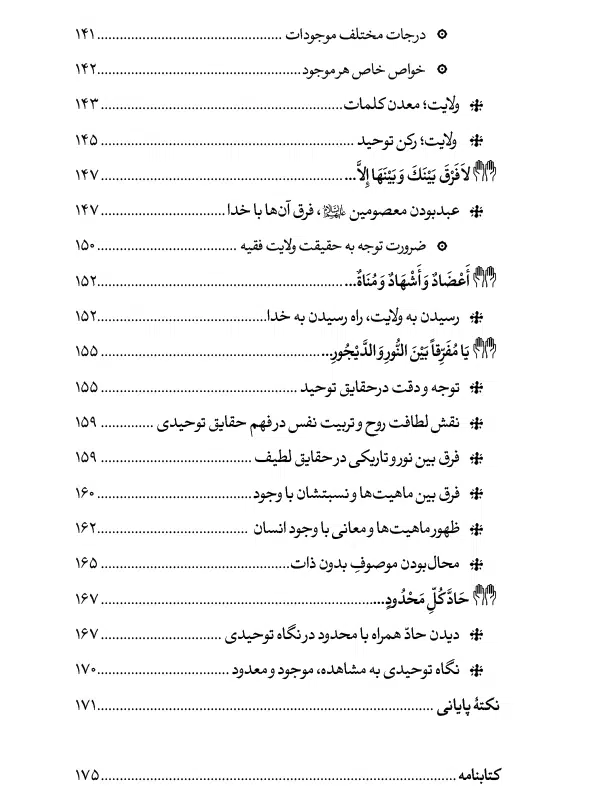 درجات مختلف موجودات ................................................ ۱۴۱
خواص خاص هر موجود ................................................ ۱۴۲
ولایت؛ معدن کلمات ................................................ ۱۴۳
ولایت؛ رکن توحید ................................................ ۱۴۵
لاَ فَرْقَ بَيْنَكَ وَ بَيْنَهَا إِلاَّ... ................................................ ۱۴۷
عبد بودن معصومین علیهم‌السلام، فرق آن‌ها با خدا ................................ ۱۴۷
ضرورت توجه به حقیقت ولایت فقیه ................................ ۱۵۰
أَعْضَادٌ وَ أَشْهَادٌ وَ مُنَاةٌ... ................................................ ۱۵۲
رسیدن به ولایت، راه رسیدن به خدا ................................ ۱۵۲
يَا مُفَرِّقاً بَيْنَ النُّورِ وَ الدَّيْجُورِ... ................................................ ۱۵۵
توجه و دقت در حقایق توحید ................................................ ۱۵۵
نقش لطافت روح و تربیت نفس در فهم حقایق توحیدی .............. ۱۵۹
فرق بین نور و تاریکی در حقایق لطیف ................................ ۱۵۹
فرق بین ماهیت‌ها و نسبتشان با وجود ................................ ۱۶۰
ظهور ماهیت‌ها و معانی با وجود انسان ................................ ۱۶۲
محال بودن موصوفِ بدون ذات ................................................ ۱۶۵
حَادَّ كُلِّ مَحْدُودٍ... ................................................ ۱۶۷
دیدن حادّ همراه با محدود در نگاه توحیدی ................................ ۱۶۷
نگاه توحیدی به مشاهده، موجود و معدود ................................ ۱۷۰
نکتهٔ پایانی ................................................ ۱۷۱
کتابنامه ................................................ ۱۷۵